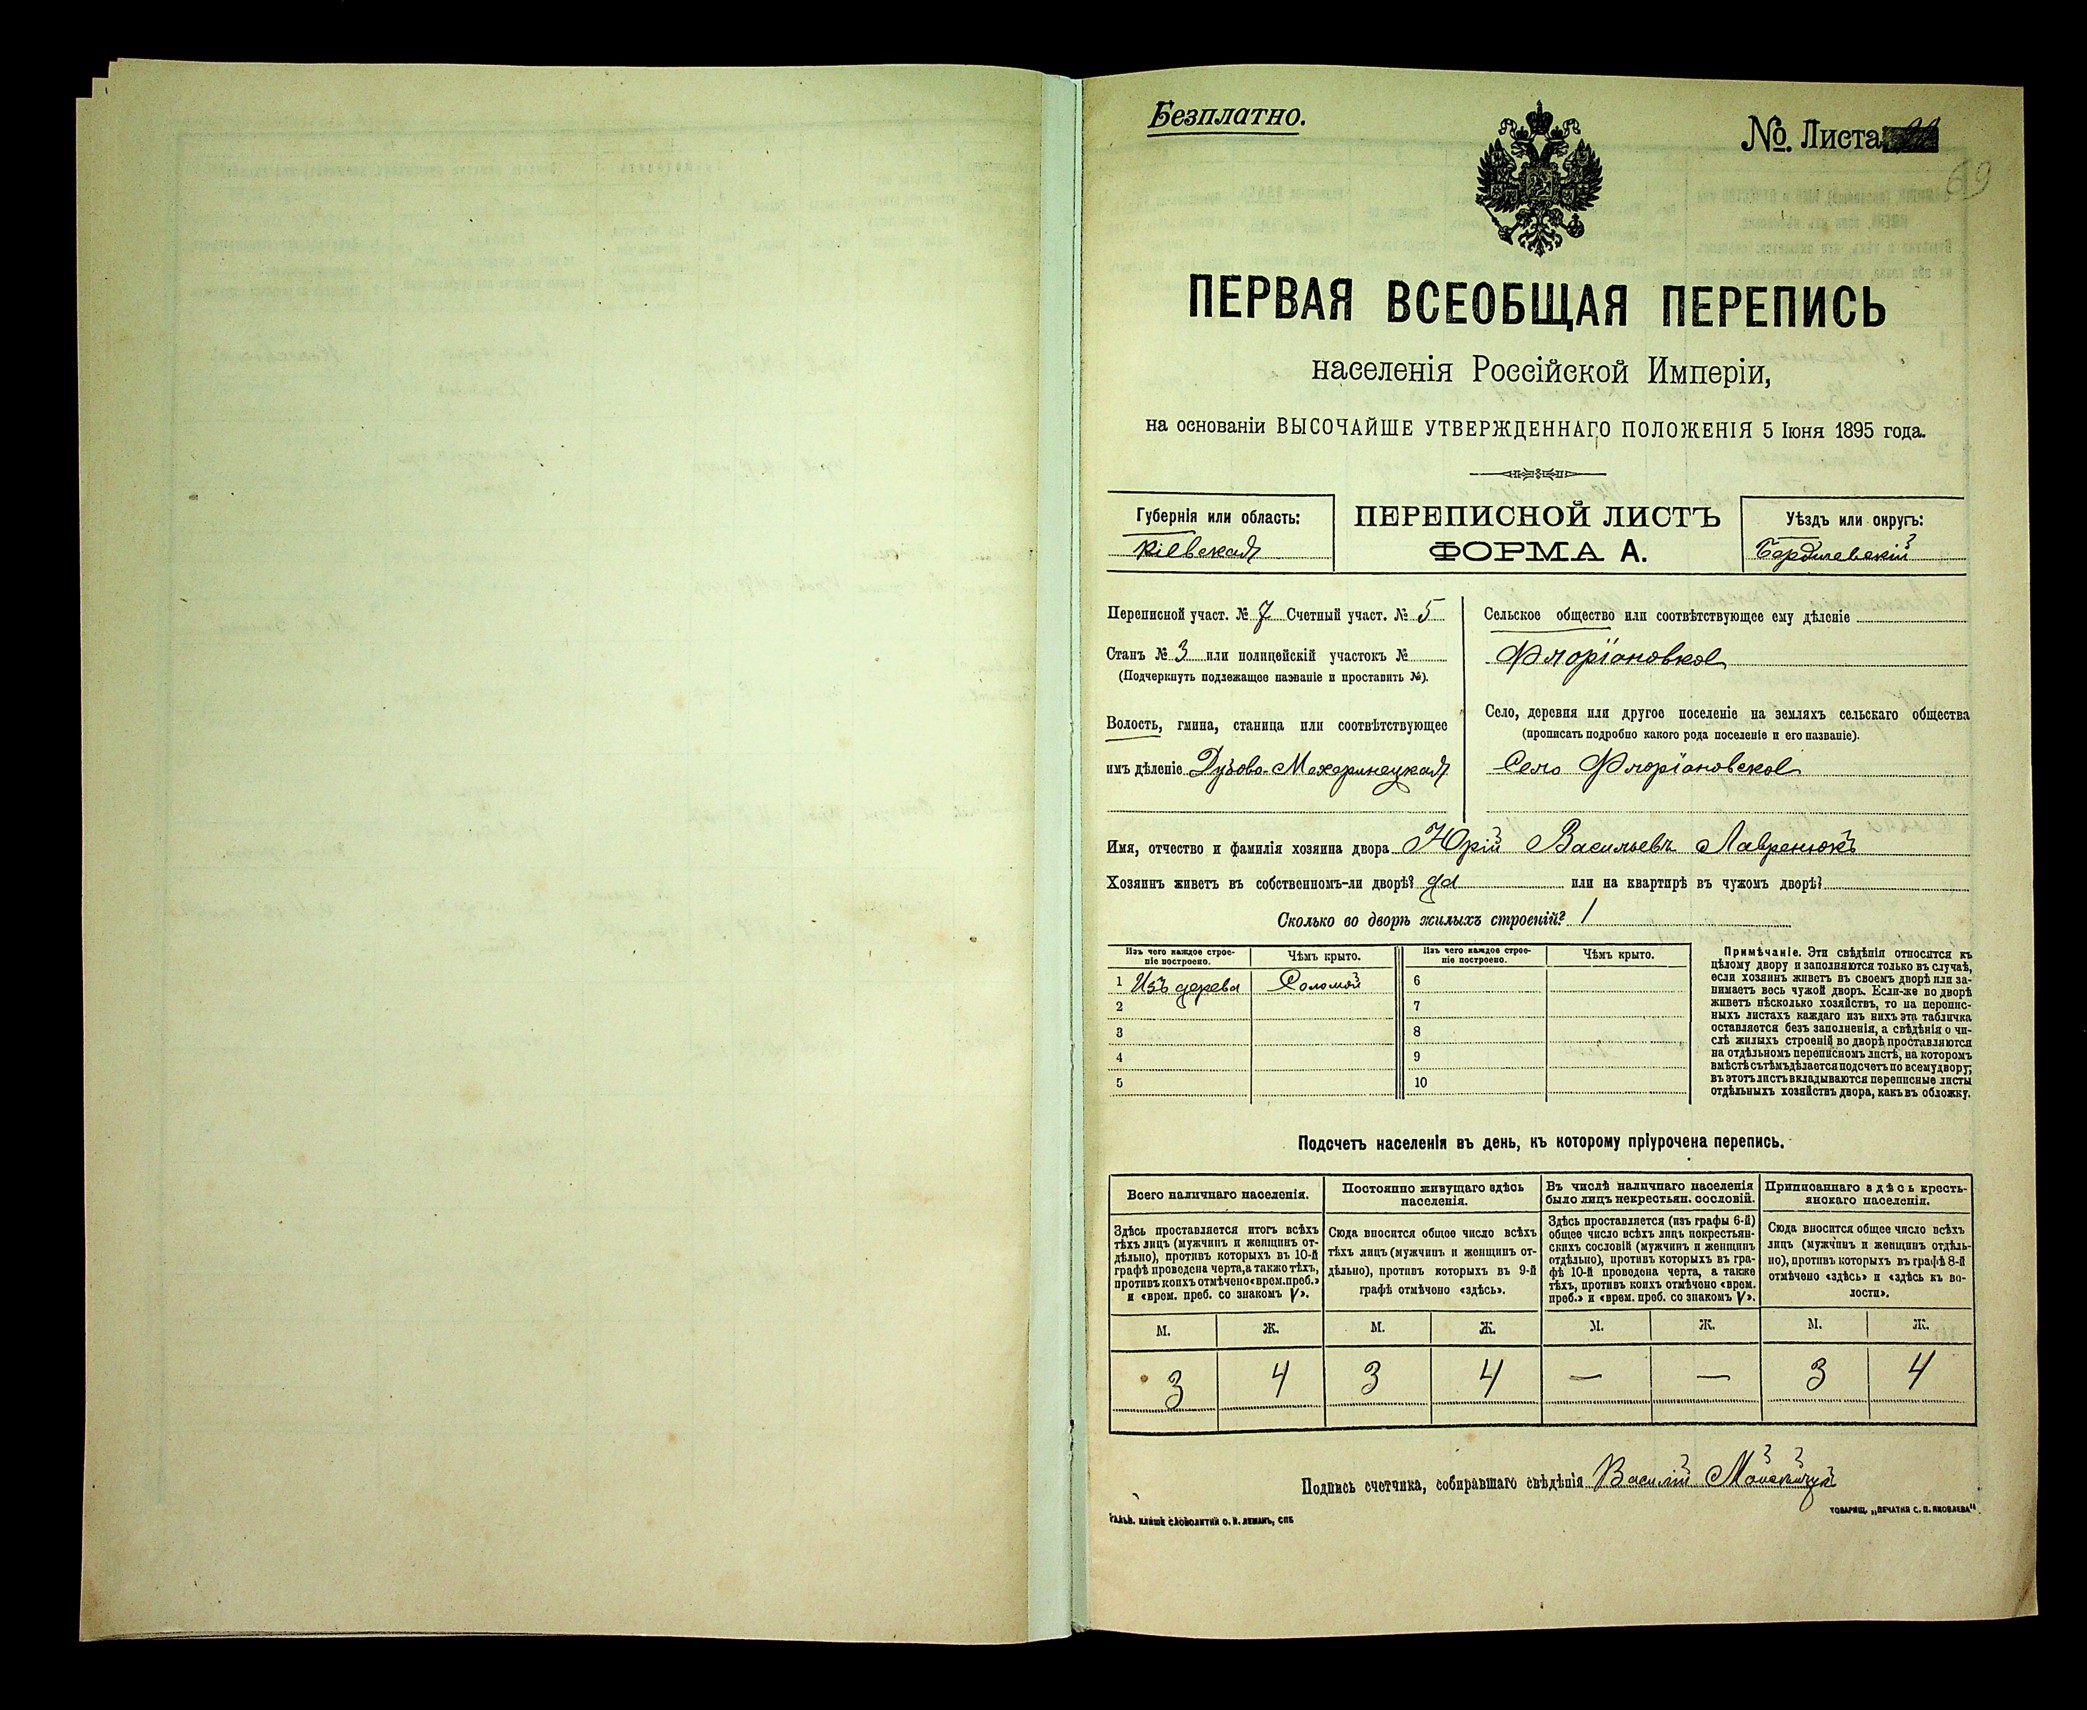 Безплатно.
№. Листа
69
ПЕРВАЯ ВСЕОБЩАЯ ПЕРЕПИСЬ
населенія Россійской Имперіи,
на основаніи ВЫСОЧАЙШЕ УТВЕРЖДЕННАГО ПОЛОЖЕНІЯ 5 Іюня 1895 года.
Губернія или область:
Кіевская
ПЕРЕПИСНОЙ ЛИСТЪ
ФОРМА А.
Уѣздъ или округъ:
Бердичевскій
Переписной участ. № 7 Счетный участ. № 5
Станъ № 3 или полицейскій участокъ №
(Подчеркнуть подлежащее названіе и проставить №).
Волость, гмина, станица или соотвѣтствующее
имъ дѣленіе Дзюво-Махаринецкая
Сельское общество или соотвѣтствующее ему дѣленіе
Флоріановка
Село, деревня или другое поселеніе на земляхъ сельскаго общества
(прописать подробно какого рода поселеніе и его названіе).
Село Флоріановка
Имя, отчество и фамилія хозяина двора Юрій Васильевъ Лавренюкъ
Хозяинъ живетъ въ собственномъ-ли дворѣ? да или на квартирѣ въ чужомъ дворѣ?
Сколько во дворѣ жилыхъ строеній? 1
Изъ чего каждое строе-
ніе построено.
Чѣмъ крыто.
Изъ чего каждое строе-
ніе построено.
Чѣмъ крыто.
1 Изъ дерева Соломой 6
2 7
3 8
4 9
5 10
Примѣчаніе. Эти свѣдѣнія относятся къ
цѣлому двору и заполняются только въ случаѣ,
если хозяинъ живетъ въ своемъ дворѣ или за-
нимаетъ весь чужой дворъ. Если-же во дворѣ
живетъ нѣсколько хозяйствъ, то на перепис-
ныхъ листахъ каждаго изъ нихъ эта табличка
оставляется безъ заполненія, а свѣдѣнія о чи-
слѣ жилыхъ строеній во дворѣ проставляются
на отдѣльномъ переписномъ листѣ, на которомъ
вмѣстѣ съ тѣмъ дѣлается подсчетъ по всему двору;
въ этотъ листъ вкладываются переписные листы
отдѣльныхъ хозяйствъ двора, какъ въ обложку.
Подсчетъ населенія въ день, къ которому пріурочена перепись.
Всего наличнаго населенія.
Здѣсь проставляется итогъ всѣхъ
тѣхъ лицъ (мужчинъ и женщинъ от-
дѣльно), противъ которыхъ въ 10-й
графѣ проведена черта, а также тѣхъ,
противъ коихъ отмѣчено «врем. преб.»
и «врем. преб. со знакомъ V».
Постоянно живущаго здѣсь
населенія.
Сюда вносится общее число всѣхъ
тѣхъ лицъ (мужчинъ и женщинъ от-
дѣльно), противъ которыхъ въ 9-й
графѣ отмѣчено «здѣсь».
Въ числѣ наличнаго населенія
было лицъ некрестьян. сословій.
Здѣсь проставляется (изъ графы 6-й)
общее число всѣхъ лицъ некрестьян-
скихъ сословій (мужчинъ и женщинъ
отдѣльно), противъ которыхъ въ гра-
фѣ 10-й проведена черта, а также
тѣхъ, противъ коихъ отмѣчено «врем.
преб.» и «врем. преб. со знакомъ V».
Приписаннаго здѣсь кресть-
янскаго населенія.
Сюда вносится общее число всѣхъ
лицъ (мужчинъ и женщинъ отдѣль-
но), противъ которыхъ въ графѣ 8-й
отмѣчено «здѣсь» и «здѣсь къ во-
лости».
М. Ж. М. Ж. М. Ж. М. Ж.
3 4 3 4 — — 3 4
Подпись счетчика, собиравшаго свѣдѣнія Василій
ГАЛЬВ. КЛИШЕ СЛОВОЛИТНИ О. И. ЛЕМАНЪ, СПБ
ТОВАРИЩ. „ПЕЧАТНЯ С. П. ЯКОВЛЕВА"